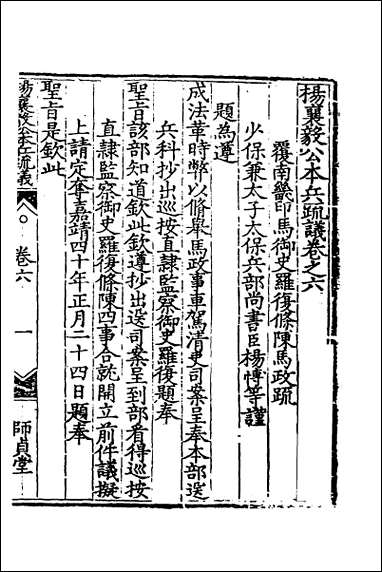 楊襄毅公本兵疏議卷之六
覆南畿印馬御史羅復條陳馬政疏
少保兼太子太保兵部尚書臣楊博等謹
題為遵
成法革時弊以脩皋馬政事車駕清吏司案呈奉本部送
兵科抄出巡按直隷監察御史羅復題奉
聖旨該部知道欽此欽遵抄出送司案呈到部看得巡按
直隷監察御史羅復條陳四事合就開立前件議擬
上請定奪嘉靖四十年正月二十四日題奉
聖旨是欽此
楊襄毅公本兵疏議
卷六
一
師貞堂